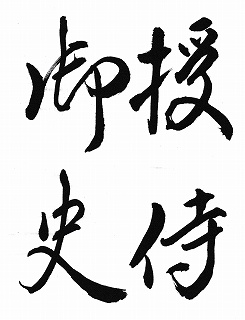 授侍
御史